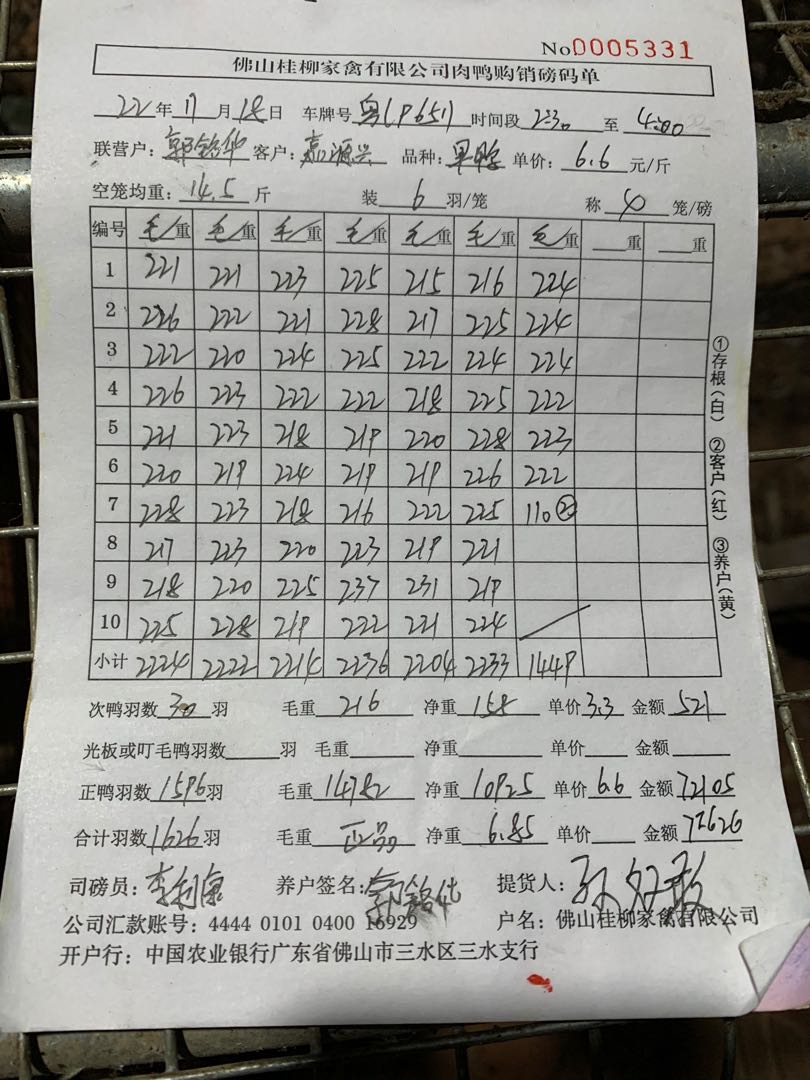 No 0005331
佛山桂柳家禽有限公司肉鸭购销磅码单
22 年 11 月 18 日 车牌号 粤 时间段 2:30 至 4:00
联营户：郭铭华 客户：嘉源兴 品种： 单价：6.6 元/斤
空笼均重：14.5 斤 装 6 羽/笼 称 4 笼/磅
编号 毛/重 毛/重 毛/重 毛/重 毛/重 毛/重 毛/重 重 重
1 221 221 223 225 215 216 224
2 226 222 221 228 217 225 224
3 222 220 224 225 222 224 224
4 226 223 222 222 218 225 222
5 221 223 218 219 220 228 223
6 220 219 224 219 219 226 222
7 228 223 218 216 222 225 110 ②
8 217 223 220 223 219 221
9 218 220 225 237 231 219
10 225 228 219 222 221 224
小计 2224 2222 2214 2236 2204 2233 1449
①存根(白) ②客户(红) ③养户(黄)
次鸭羽数 30 羽 毛重 216 净重 158 单价 3.3 金额 521
光板或叮毛鸭羽数 羽 毛重 净重 单价 金额
正鸭羽数 1596 羽 毛重 14782 净重 10925 单价 6.6 金额 72105
合计羽数 1626 羽 毛重 正品 净重 6.85 单价 金额 72626
司磅员： 养户签名：郭铭华 提货人：
公司汇款账号：4444 0101 0400 16929 户名：佛山桂柳家禽有限公司
开户行：中国农业银行广东省佛山市三水区三水支行